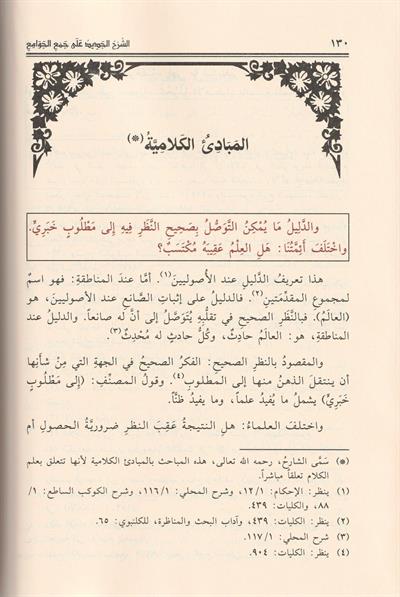 ١٣٠
الشرح الجديد على جمع الجوامع
المَبَادِئُ الكَلَامِيَّةُ (*)
والدَّلِيلُ مَا يُمْكِنُ التَّوَصُّلُ بِصَحِيحِ النَّظَرِ فِيهِ إِلى مَطْلُوبٍ خَبَرِيٍّ.
واخْتَلَفَ أَئِمَّتُنَا: هَلِ العِلْمُ عَقِيبَهُ مُكْتَسَبٌ؟
هذا تعريفُ الدَّليلِ عند الأُصوليينَ(١). أمَّا عندَ المناطقةِ: فهو اسمٌ
لمجموعِ المقدّمَتينِ(٢). فالدليلُ على إثباتِ الصَّانعِ عند الأصوليين، هو
(العالَمُ). فبالنَّظَرِ الصحيحِ في تقلُّبِهِ يُتَوَصَّلُ إلى أنَّ له صانعاً. والدليلُ عند
المناطقةِ، هو: العالَمُ حادِثٌ، وكُلُّ حادثٍ له مُحْدِثٌ(٣).
والمقصودُ بالنظرِ الصحيحِ: الفكرُ الصحيحُ في الجهةِ التي مِنْ شأنِها
أن ينتقلَ الذهنُ منها إلى المطلوبِ(٤). وقولُ المصنِّفِ: (إِلى مَطْلُوبٍ
خَبَرِيٍّ) يشملُ ما يُفيدُ علماً، وما يفيدُ ظنّاً.
واختلفَ العلماءُ: هلِ النتيجةُ عَقِبَ النظرِ ضروريَّةُ الحصولِ أم
(*) سَمَّى الشارحُ، رحمه الله تعالى، هذه المباحث بالمبادئ الكلامية لأنها تتعلق بعلم
الكلام تعلقاً مباشراً.
(١) ينظر: الإحكام: ١٢/١، وشرح المحلي: ١١٦/١، وشرح الكوكب الساطع: ١/
٨٨، والكليات: ٤٣٩.
(٢) ينظر: الكليات: ٤٣٩، وآداب البحث والمناظرة، للكلنبوي: ٦٥.
(٣) شرح المحلي: ١١٧/١.
(٤) ينظر: الكليات: ٩٠٤.